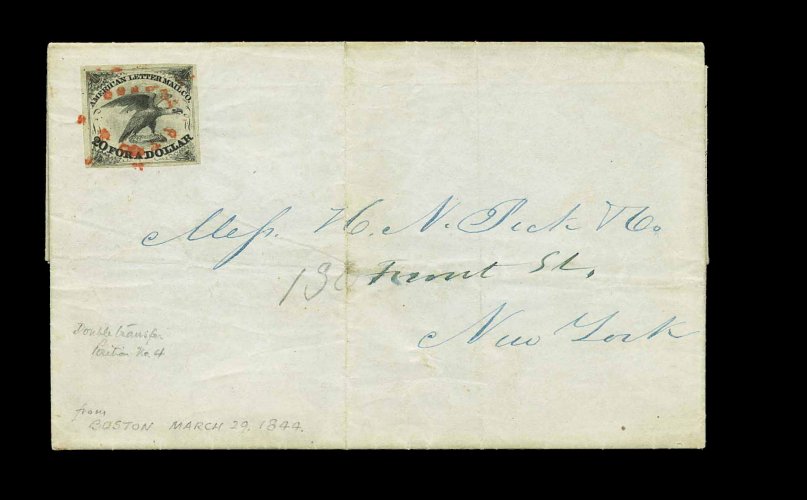 AMERICAN LETTER MAIL CO.
20 FOR A DOLLAR
Mess. H. N. Peck & Co.
Front St.
New York
Double transfer
Position No. 4
from
BOSTON MARCH 29, 1844.